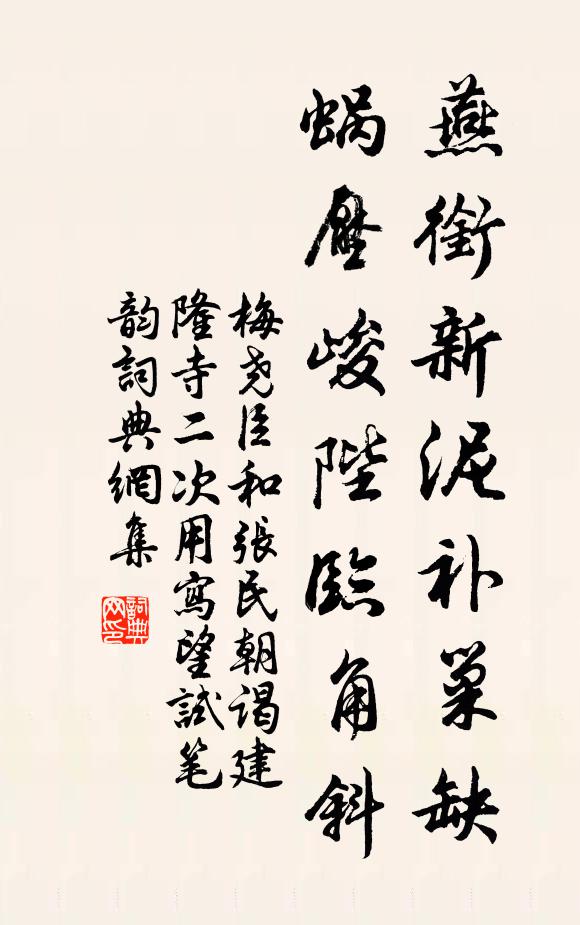 燕銜新泥补巢缺
蜗壓峻陛臨角斜
梅尧臣和張民朝谒建
隆寺二次用寫望試笔
韵詞典網集
詞典网印